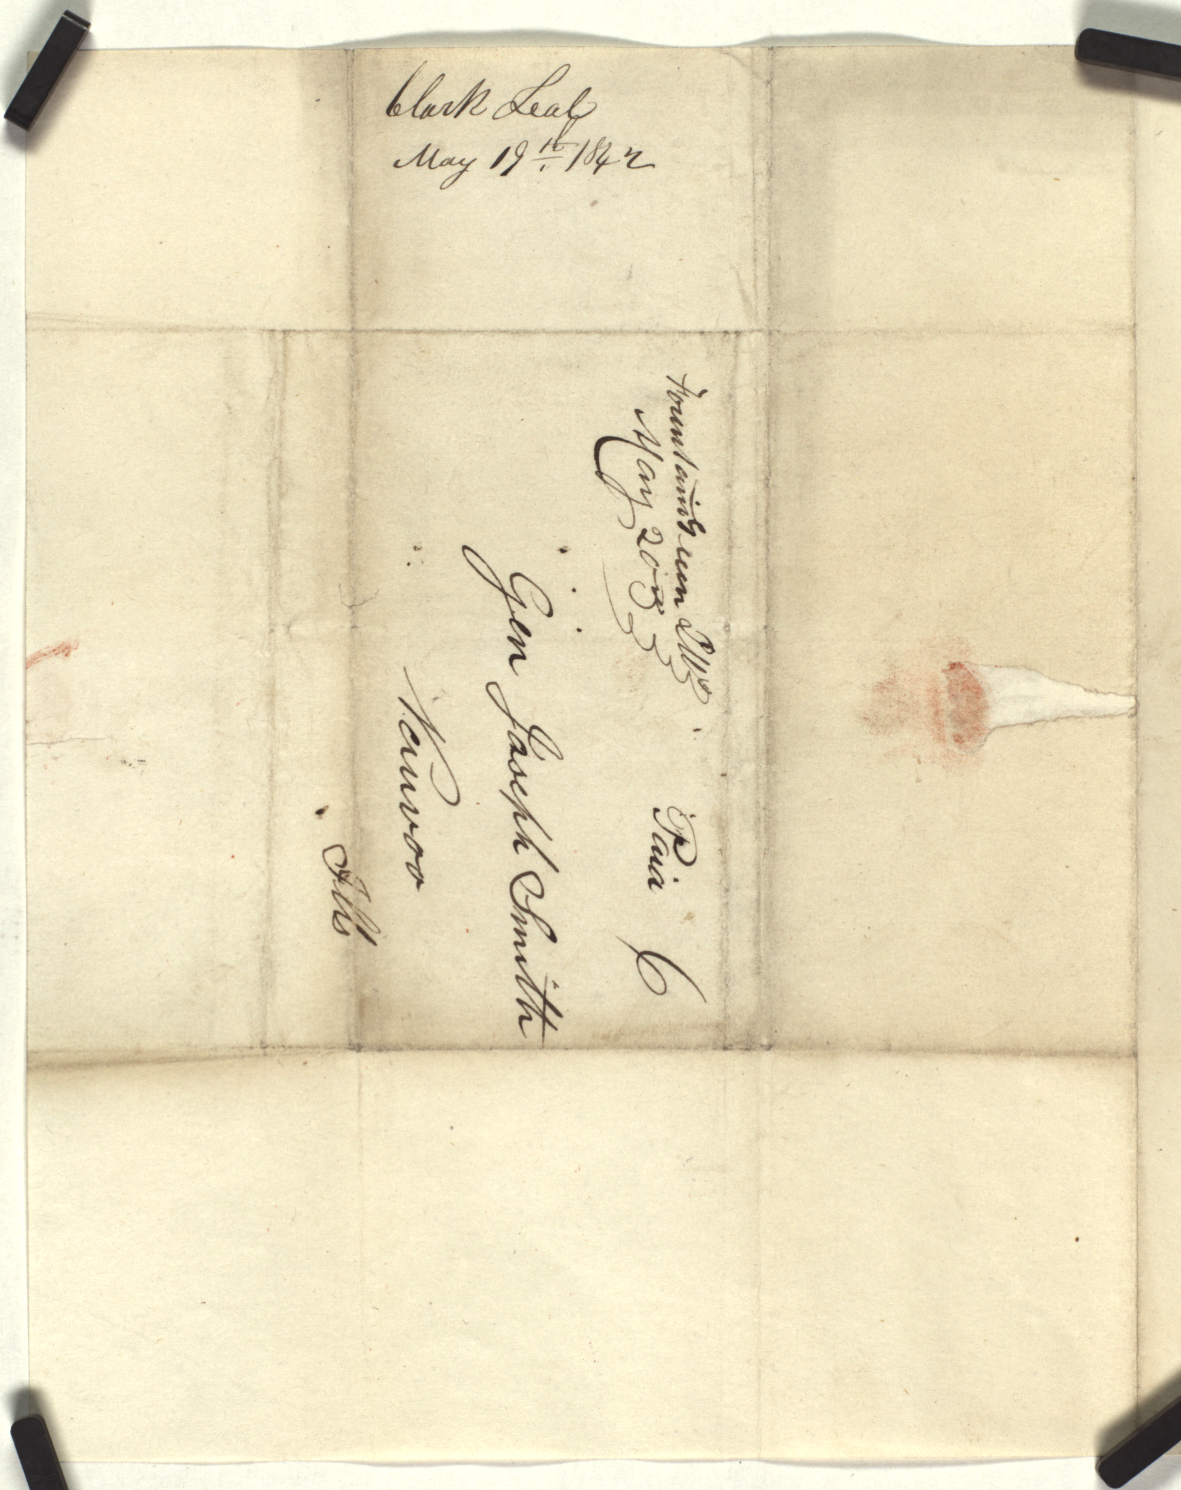 Clark Leal
May 19th 1842
Fountain Green Ills
May 20th
Paid 6
Gen Joseph Smith
Nauvoo
Ills